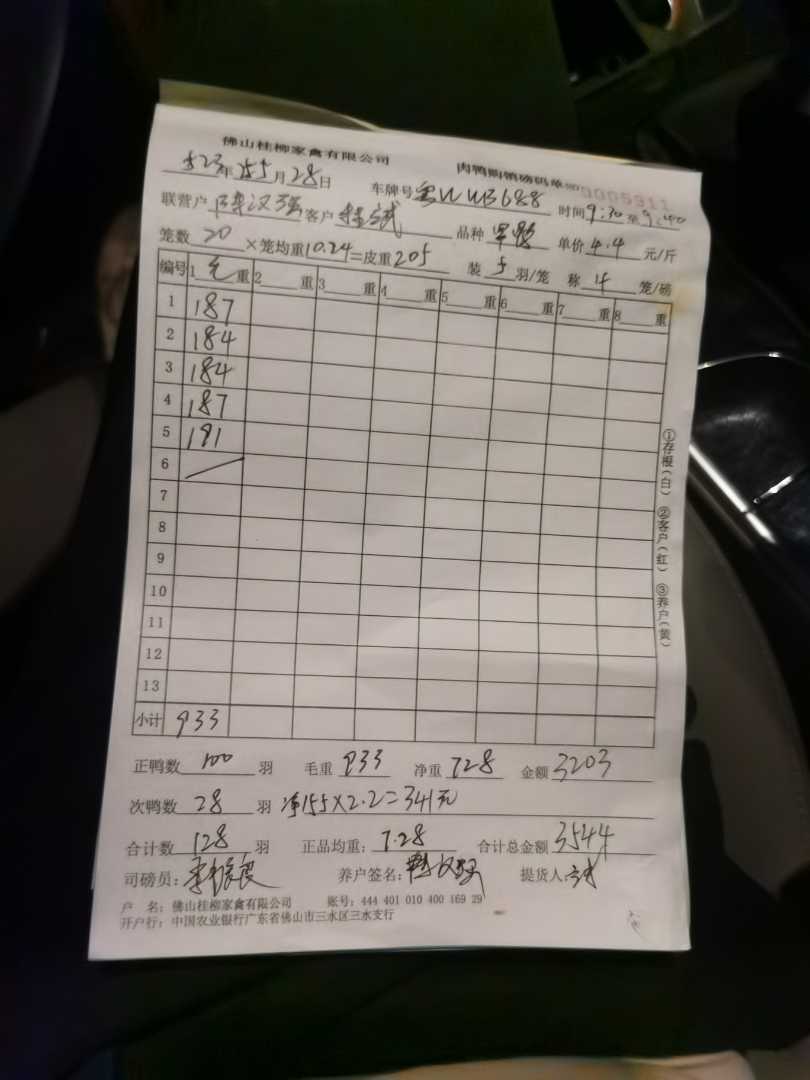 佛山桂柳家禽有限公司 肉鸭购销磅码单 NO 0005911
年 月 28 日 车牌号 粤WWB688 时间 9:30 至 9:40
联营户 陈汉强 客户 程斌 品种 单价 4.4 元/斤
笼数 20 ×笼均重 10.24 =皮重 205 装 5 羽/笼 称 4 笼/磅
编号 1 毛 重 2 重 3 重 4 重 5 重 6 重 7 重 8 重
1 187
2 184
3 184
4 187
5 191
6
7
8
9
10
11
12
13
小计 933
①存根(白) ②客户(红) ③养户(黄)
正鸭数 100 羽 毛重 933 净重 728 金额 3203
次鸭数 28 羽 净155×2.2=341元
合计数 128 羽 正品均重: 7.28 合计总金额 3544
司磅员: 养户签名: 提货人:
户 名: 佛山桂柳家禽有限公司 账号: 444 401 010 400 169 29
开户行: 中国农业银行广东省佛山市三水区三水支行